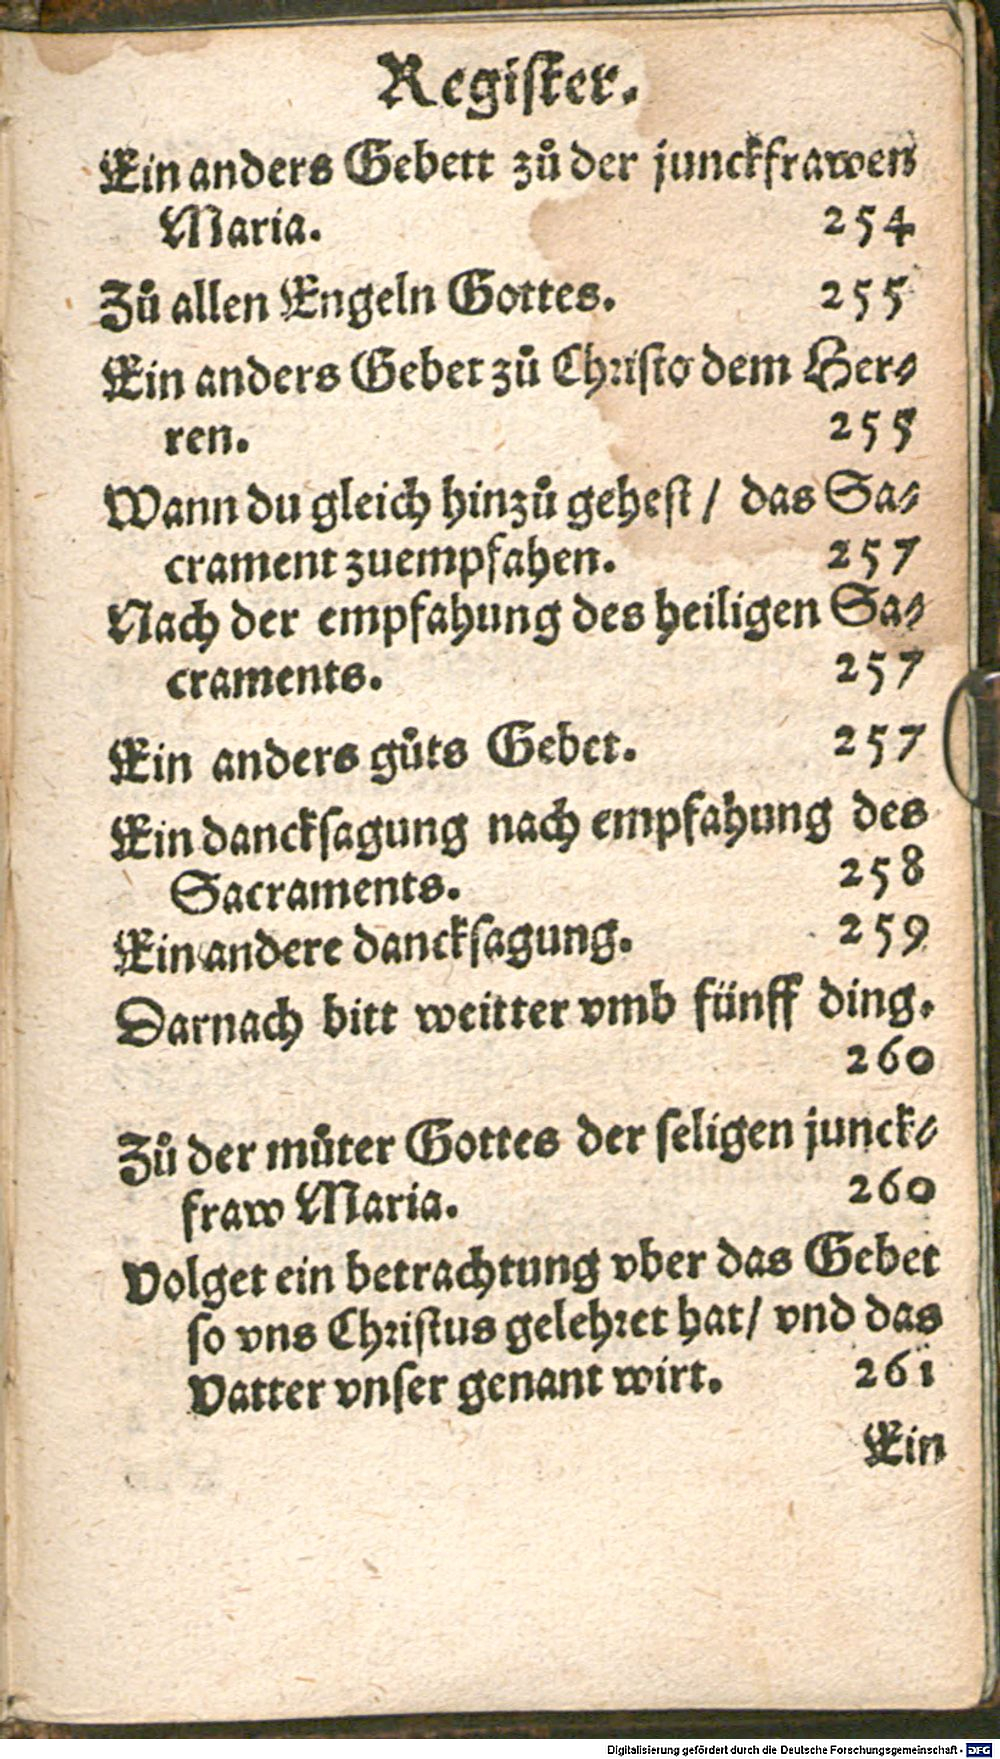 Regiſter.
Ein anders Gebett zů der junckfrawen
Maria. 254
Zů allen Engeln Gottes. 255
Ein anders Gebet zů Chꝛiſto dem Her⸗
ren. 255
Wann du gleich hinzů geheſt / das Sa⸗
crament zuempfahen. 257
Nach der empfahung des heiligen Sa⸗
craments. 257
Ein anders gůts Gebet. 257
Ein danckſagung nach empfahung des
Sacraments. 258
Ein andere danckſagung. 259
Darnach bitt weitter vmb fünff ding.
260
Zů der můter Gottes der ſeligen junck⸗
fraw Maria. 260
Volget ein betrachtung vber das Gebet
ſo vns Chꝛiſtus gelehꝛet hat / vnd das
Vatter vnſer genant wirt. 261
Ein
Digitalisierung gefördert durch die Deutsche Forschungsgemeinschaft - DFG